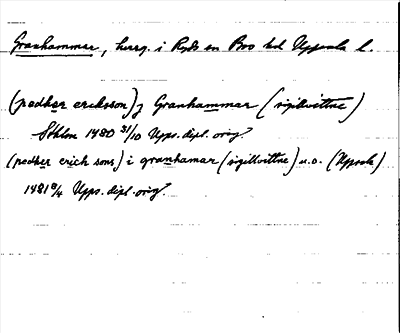 Granhammar, herrg. i Ryds sn Bro hd Uppsala l.
(pedher ericksson) j Granhammar (sigillvittne)
Sthlm 1480 31/10 Upps. dipl. orig.
(pedher erick sons) i granhamar (sigillvittne) u.o. (Uppsala)
1481 8/4 Upps. dipl. orig.